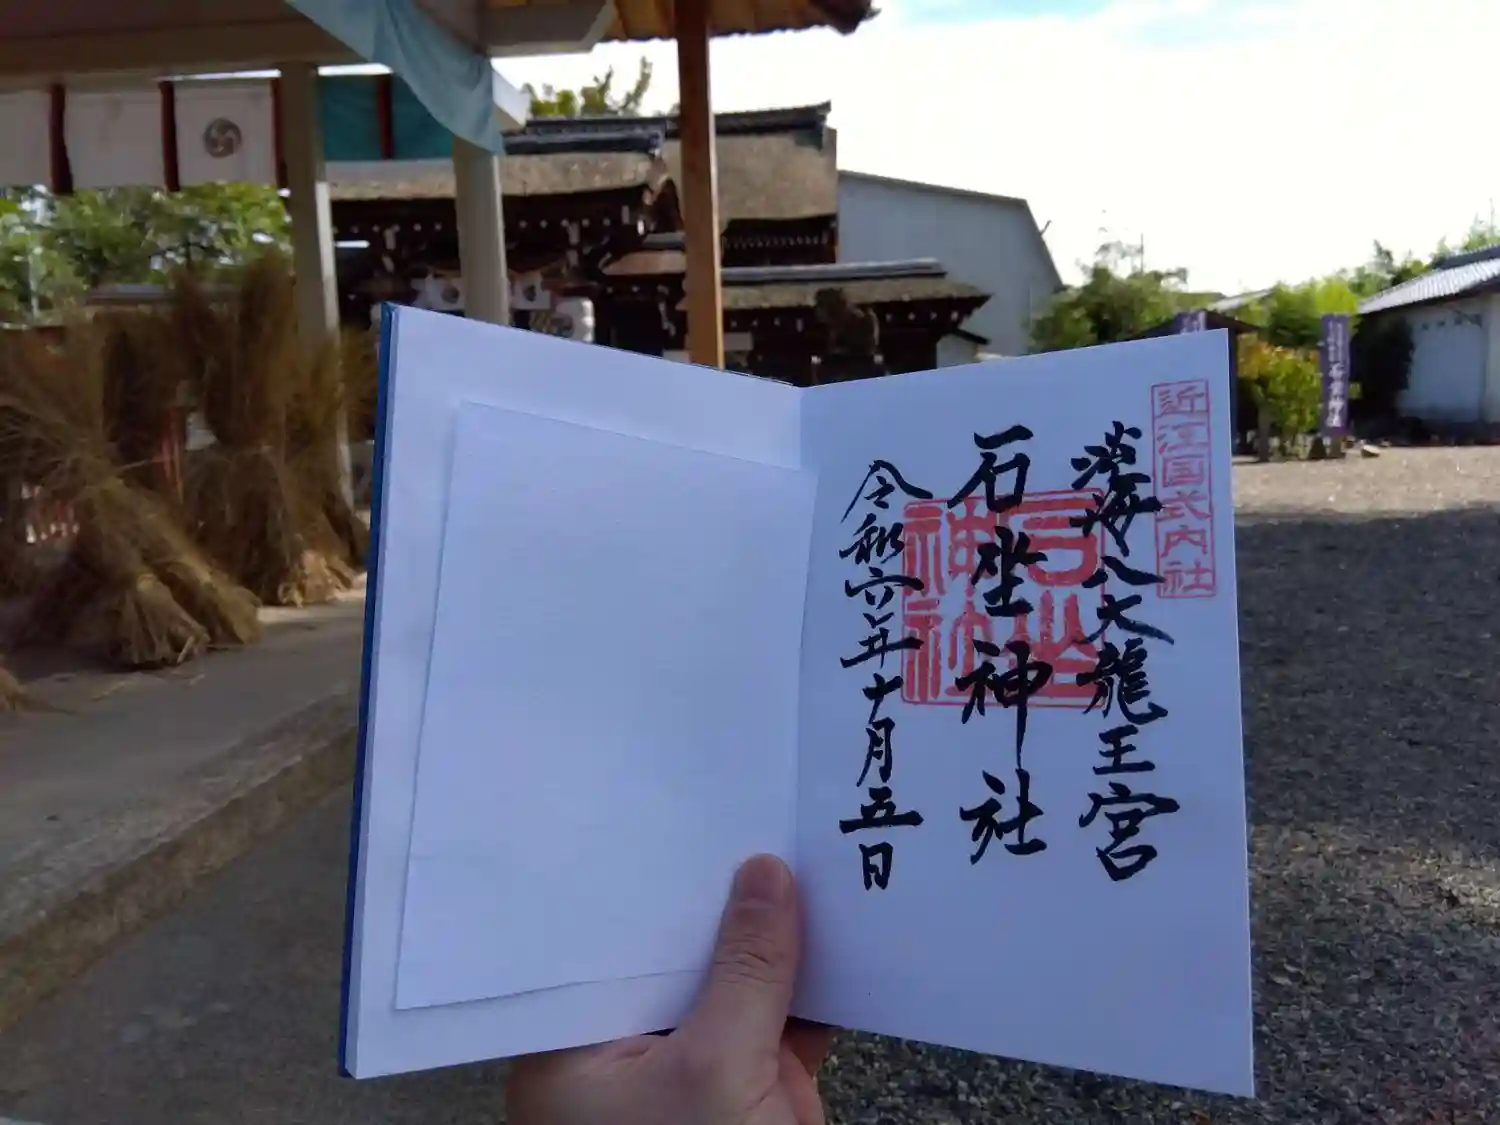 近江国式内社
淡海八大龍王宮
石坐神社
石坐神社
令和六年十月五日
石坐神社